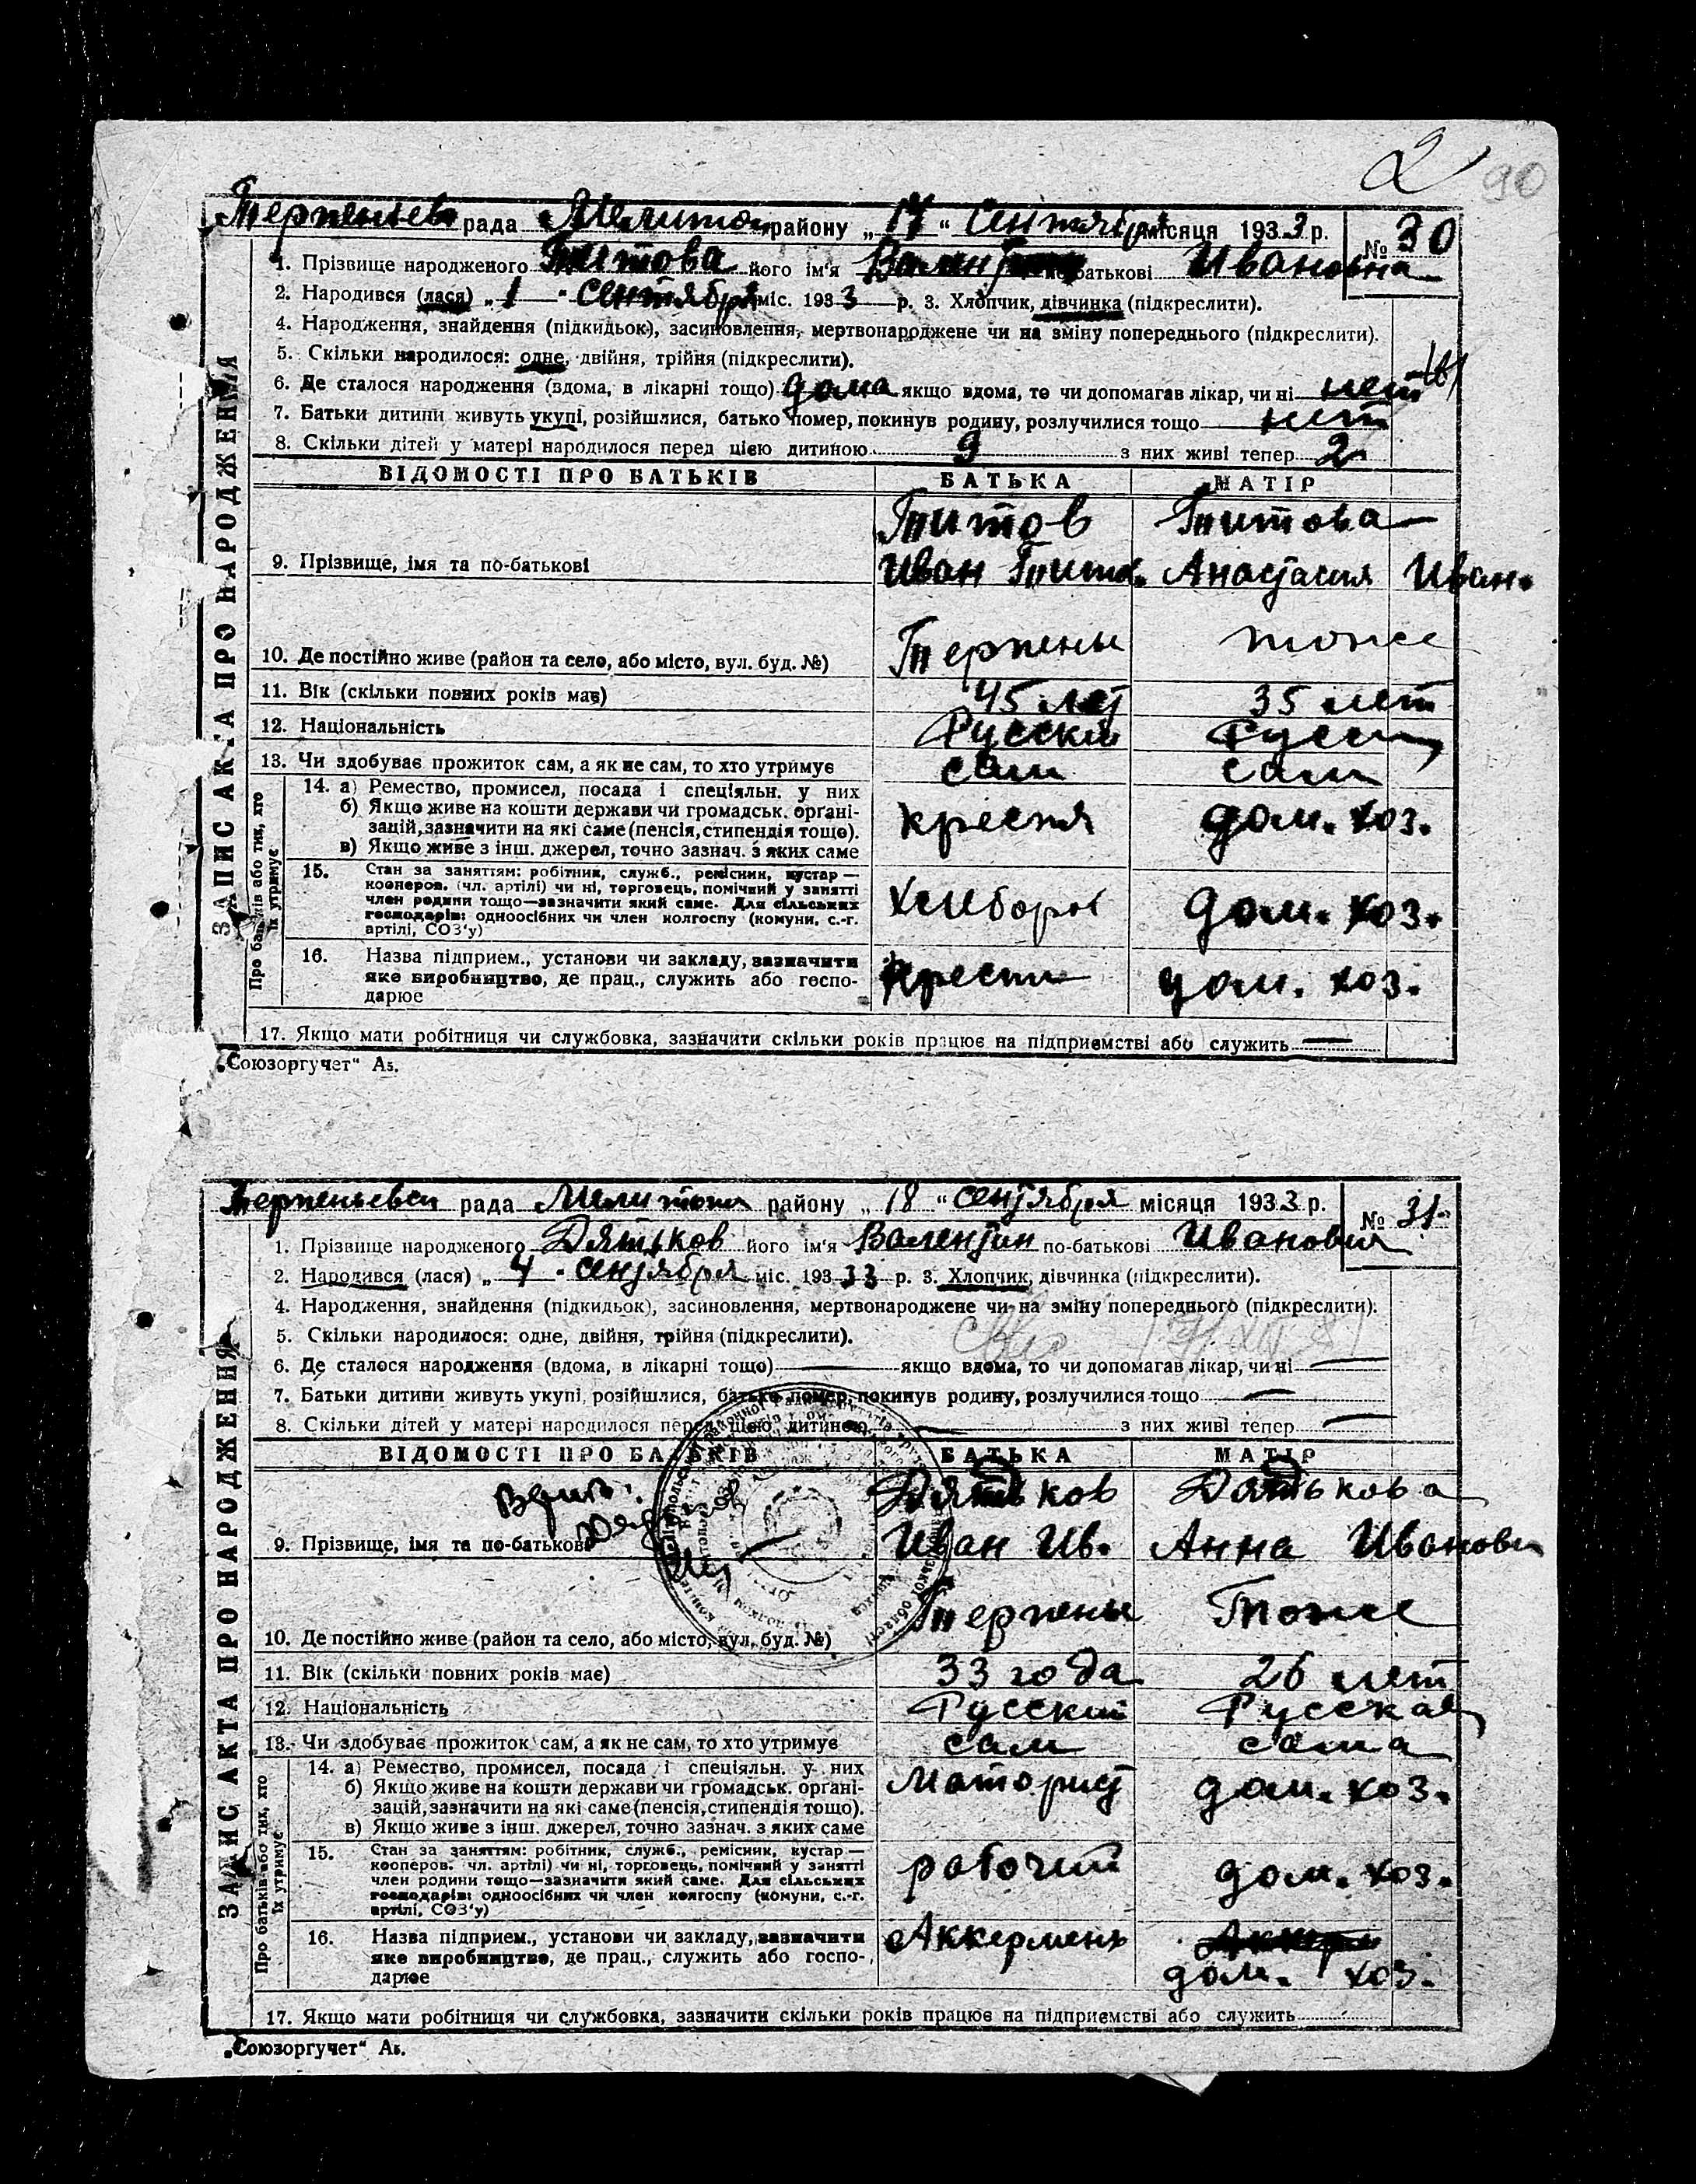 2 90
рада Мелитоп району „17“ Сентября місяця 1933 р. № 30
1. Прізвище народженого Титова його ім'я по-батькові Ивановна
2. Народився (лася) „1“ Сентября міс. 1933 р. 3. Хлопчик, дівчинка (підкреслити).
4. Народження, знайдення (підкидьок), засиновлення, мертвонароджене чи на зміну попереднього (підкреслити).
5. Скільки народилося: одне, двійня, трійня (підкреслити).
6. Де сталося народження (вдома, в лікарні тощо) дома якщо вдома, то чи допомагав лікар, чи ні нет
7. Батьки дитини живуть укупі, розійшлися, батько помер, покинув родину, розлучилися тощо нет
8. Скільки дітей у матері народилося перед цією дитиною 9 з них живі тепер 2
ВІДОМОСТІ ПРО БАТЬКІВ БАТЬКА МАТІР
Титов Титова
9. Прізвище, імя та по-батькові Иван Тито. Анастасия Иван.
10. Де постійно живе (район та село, або місто, вул. буд. №) Терпенье тоже
11. Вік (скільки повних років має) 45 лет 35 лет
12. Національність Русский Русск
13. Чи здобуває прожиток сам, а як не сам, то хто утримує сам сам
14. а) Ремество, промисел, посада і спеціяльн. у них
б) Якщо живе на кошти держави чи громадськ. орґані-
зацій, зазначити на які саме (пенсія, стипендія тощо).
в) Якщо живе з інш. джерел, точно зазнач. з яких саме
крестя дом. хоз.
15. Стан за заняттям: робітник, служб., ремісник, кустар —
кооперов. (чл. артілі) чи ні, торговець, помічний у занятті
член родини тощо—зазначити який саме. Для сільських
господарів: одноосібних чи член колгоспу (комуни, с.-г.
артілі, СОЗ'у)
Хлибороб дом. хоз.
16. Назва підприєм., установи чи закладу, зазначити
яке виробництво, де прац., служить або госпо-
дарює
крестя дом. хоз.
17. Якщо мати робітниця чи службовка, зазначити скільки років працює на підприємстві або служить
„Союзоргучет“ А5.
ЗАПИС АКТА ПРО НАРОДЖЕННЯ
Про батьків або тих, хто
їх утримує
Терпеньевск рада Мелитоп району „18“ сентября місяця 1933 р. № 31
1. Прізвище народженого Дятьков його ім'я Валентин по-батькові Иванович
2. Народився (лася) „4“ сентября міс. 193 33 р. 3. Хлопчик, дівчинка (підкреслити).
4. Народження, знайдення (підкидьок), засиновлення, мертвонароджене чи на зміну попереднього (підкреслити).
5. Скільки народилося: одне, двійня, трійня (підкреслити).
6. Де сталося народження (вдома, в лікарні тощо) якщо вдома, то чи допомагав лікар, чи ні
7. Батьки дитини живуть укупі, розійшлися, батько помер, покинув родину, розлучилися тощо
8. Скільки дітей у матері народилося перед цією дитиною з них живі тепер
ВІДОМОСТІ ПРО БАТЬКІВ БАТЬКА МАТІР
Дятьков Дятькова
9. Прізвище, імя та по-батькові Иван Ив. Анна Иванови
10. Де постійно живе (район та село, або місто, вул. буд. №) Терпенье Тоже
11. Вік (скільки повних років має) 33 года 26 лет
12. Національність Русский Русская
13. Чи здобуває прожиток сам, а як не сам, то хто утримує сам сама
14. а) Ремество, промисел, посада і спеціяльн. у них
б) Якщо живе на кошти держави чи громадськ. орґані-
зацій, зазначити на які саме (пенсія, стипендія тощо).
в) Якщо живе з інш. джерел, точно зазнач. з яких саме
Моторист дом. хоз.
15. Стан за заняттям: робітник, служб., ремісник, кустар —
кооперов. чл. артілі) чи ні, торговець, помічний у занятті
член родини тощо—зазначити який саме. Для сільських
господарів: одноосібних чи член колгоспу (комуни, с.-г.
артілі, СОЗ'у)
рабочий дом. хоз.
16. Назва підприєм., установи чи закладу, зазначити
яке виробництво, де прац., служить або госпо-
дарює
Аккермень дом. хоз.
17. Якщо мати робітниця чи службовка, зазначити скільки років працює на підприємстві або служить
„Союзоргучет“ А5.
ЗАПИС АКТА ПРО НАРОДЖЕННЯ
Про батьків або тих, хто
їх утримує